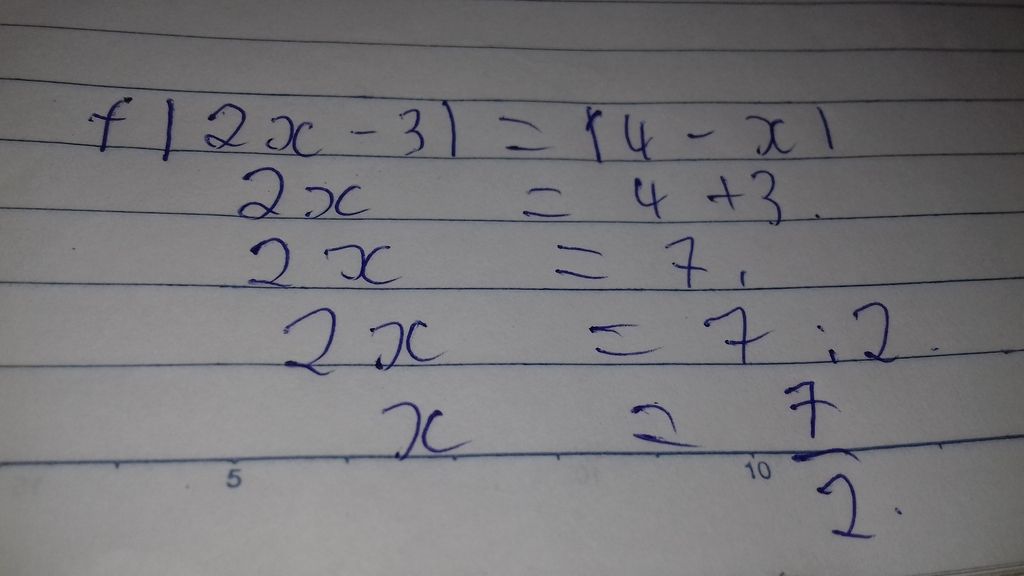 f|2x - 3| = |4 - x|
2x = 4 + 3.
2x = 7.
2x = 7 : 2.
x = 7/2.
5 10